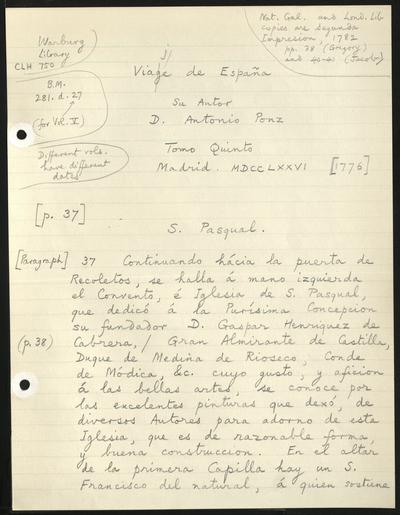 Warburg
Library
CLH 750
B.M.
281. d. 27
(for Vol. V)
Different vols.
have different
dates
Nat. Gal. and Lond. Lib
copies are Segunda
Impresion, 1782
pp. 38 (Gregory)
and 40-41 (Jacob)
Viage de España
Su Autor
D. Antonio Ponz
Tomo Quinto
Madrid. MDCCLXXVI [1776]
[p. 37]
S. Pasqual.
[Paragraph] 37 Continuando hácia la puerta de
Recoletos, se halla á mano izquierda
el Convento, é Iglesia de S. Pasqual,
que dedicó á la Purísima Concepcion
su fundador D. Gaspar Henriquez de
(p. 38) Cabrera, / Gran Almirante de Castilla,
Duque de Medina de Rioseco, Conde
de Módica, &c. cuyo gusto, y aficion
á las bellas artes, se conoce por
las excelentes pinturas que dexó, de
diversos Autores para adorno de esta
Iglesia, que es de razonable forma,
y buena construccion. En el altar
de la primera Capilla hay un S.
Francisco del natural, á quien sostiene